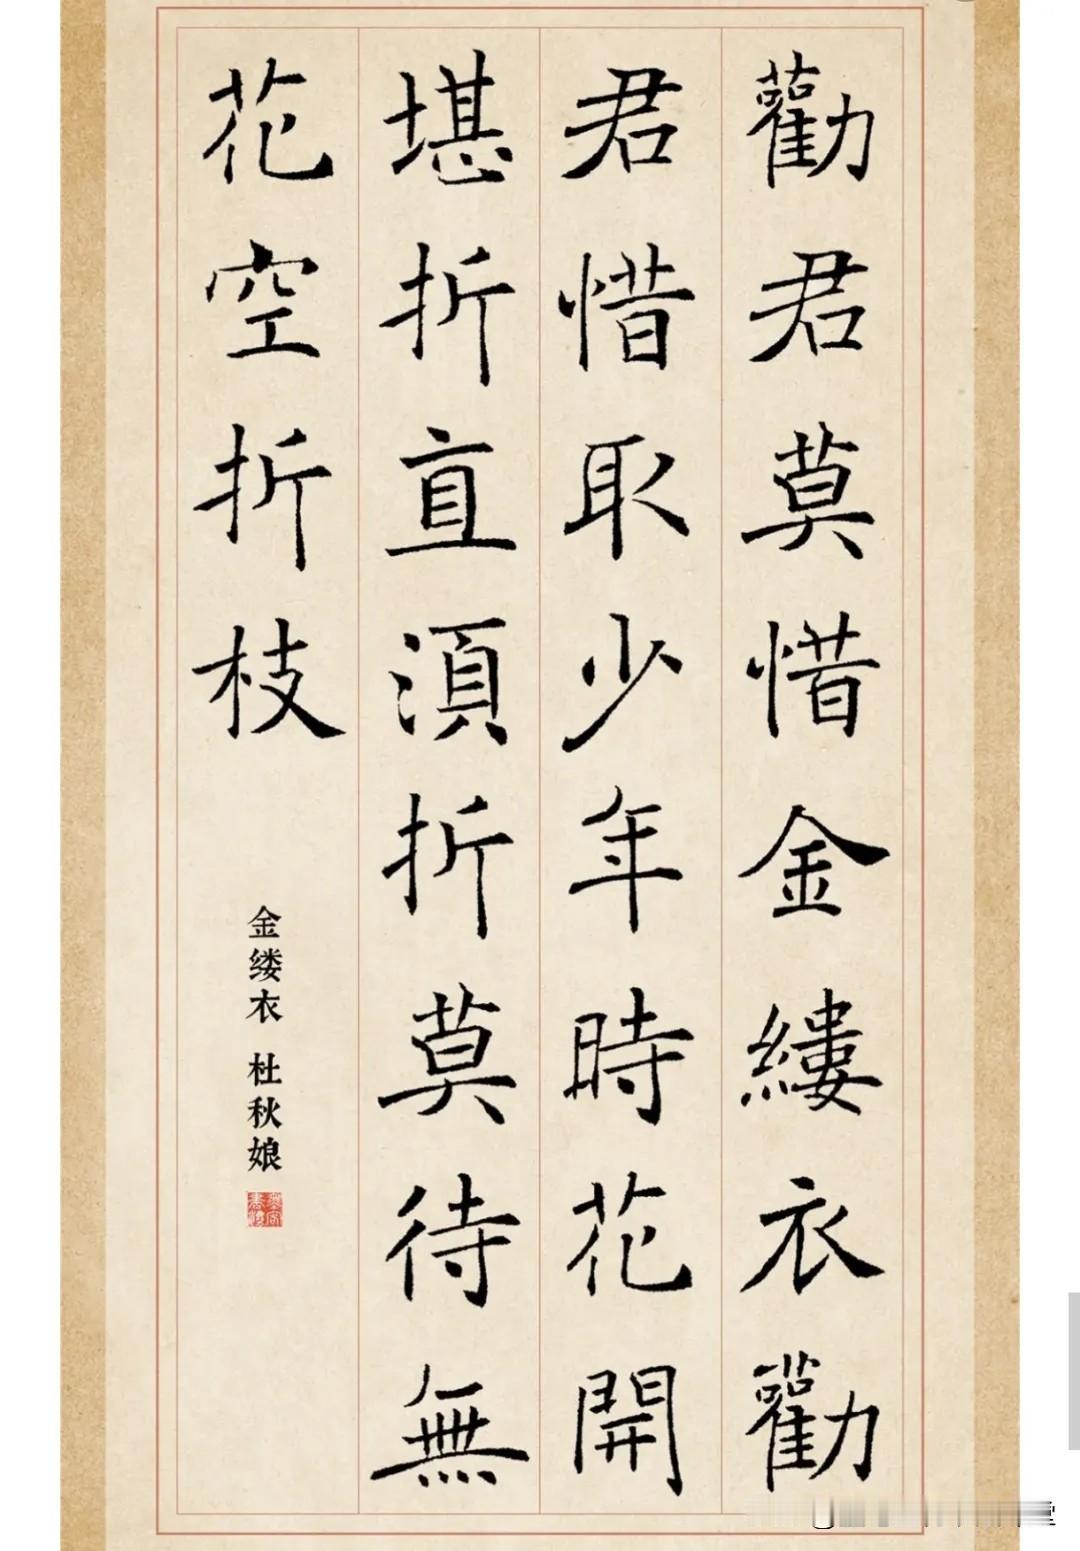 勸君莫惜金縷衣勸
君惜取少年時花開
堪折直須折莫待無
花空折枝
金缕衣 杜秋娘